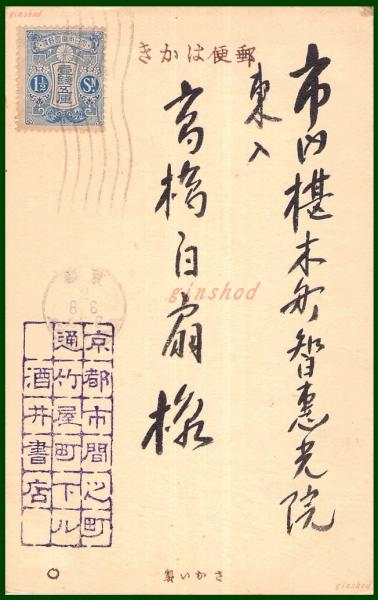 ginshod
郵便はかき
1½ Sn
市内椹木町智恵光院
東入
高橋白扇様
ginshod
京都
6.6
京都市間之町
通竹屋町下ル
酒井書店
さかい製
ginshod